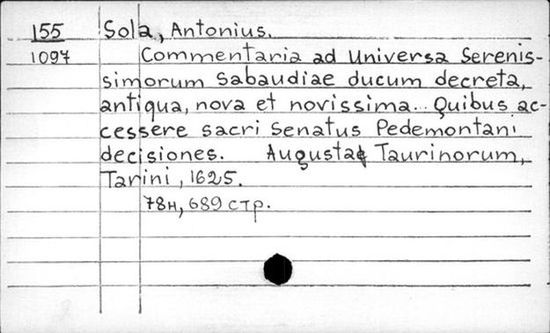 155 Sola, Antonius.
1097 Commentaria ad Universa Serenis-
simorum Sabaudiae ducum decreta,
antiqua, nova et novissima.. Quibus ac-
cessere sacri Senatus Pedemontani
decisiones. Augustae Taurinorum,
Tarini, 1625.
78н, 689 стр.